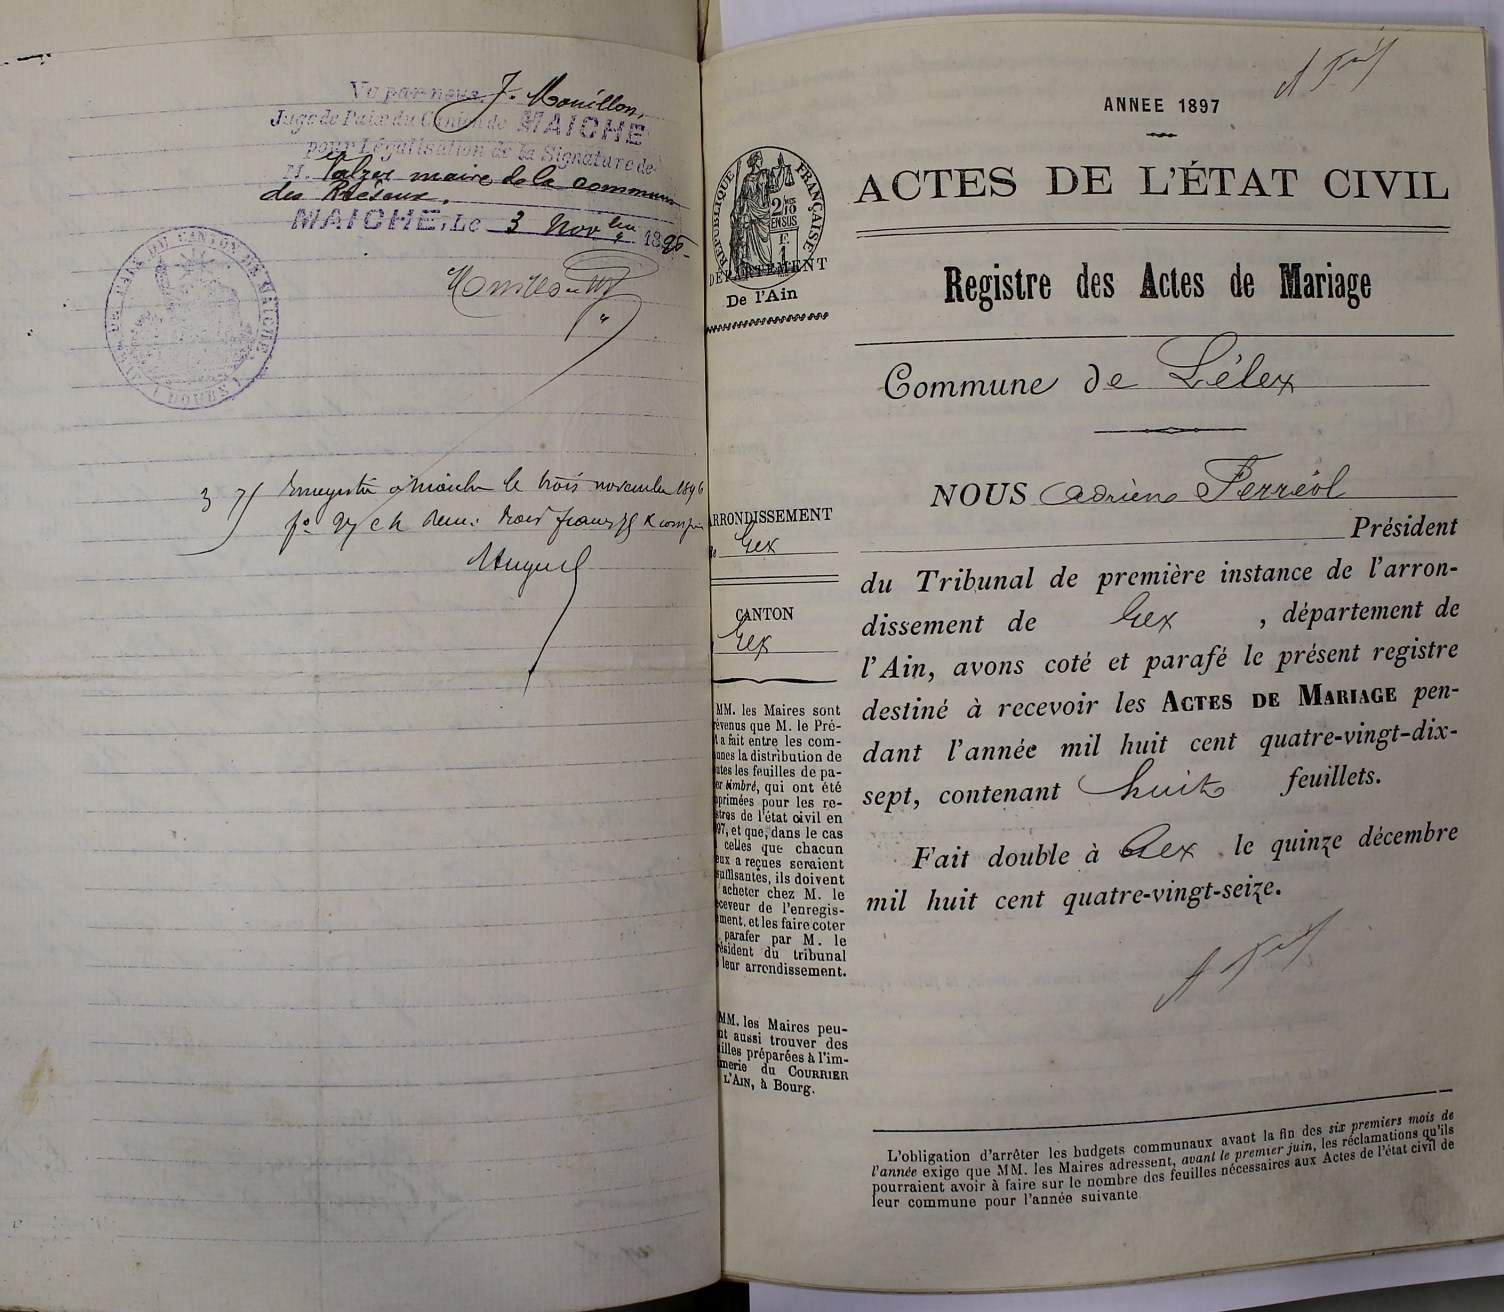 Vu par nous, J. Mouillon,
Juge de Paix du Canton de MAICHE
pour Légalisation de la Signature de
M. maire de la commune
des
MAICHE, Le 3 Novbre 1896
JUSTICE DE PAIX DU CANTON DE MAICHE
(DOUBS)
3 75 Enregistré à Maiche le trois novembre 1896
fo c Reçu: trois francs 75 c compris
ANNEE 1897
ACTES DE L'ÉTAT CIVIL
RÉPUBLIQUE FRANÇAISE
2/10
EN SUS
F.
1
DÉPARTEMENT
De l'Ain
Registre des Actes de Mariage
Commune de Lélex
ARRONDISSEMENT
de Gex
CANTON
Gex
MM. les Maires sont
révenus que M. le Pré-
t a fait entre les com-
unes la distribution de
utes les feuilles de pa-
er timbré, qui ont été
primées pour les re-
stres de l'état civil en
97, et que, dans le cas
celles que chacun
eux a reçues seraient
suffisantes, ils doivent
acheter chez M. le
ceveur de l'enregis-
ment, et les faire coter
parafer par M. le
ésident du tribunal
leur arrondissement.
MM. les Maires peu-
nt aussi trouver des
illes préparées à l'im-
merie du COURRIER
L'AIN, à Bourg.
NOUS Adrien Ferréol
Président
du Tribunal de première instance de l'arron-
dissement de Gex , département de
l'Ain, avons coté et parafé le présent registre
destiné à recevoir les ACTES DE MARIAGE pen-
dant l'année mil huit cent quatre-vingt-dix-
sept, contenant huit feuillets.
Fait double à Gex le quinze décembre
mil huit cent quatre-vingt-seize.
L'obligation d'arrêter les budgets communaux avant la fin des six premiers mois de
l'année exige que MM. les Maires adressent, avant le premier juin, les réclamations qu'ils
pourraient avoir à faire sur le nombre des feuilles nécessaires aux Actes de l'état civil de
leur commune pour l'année suivante